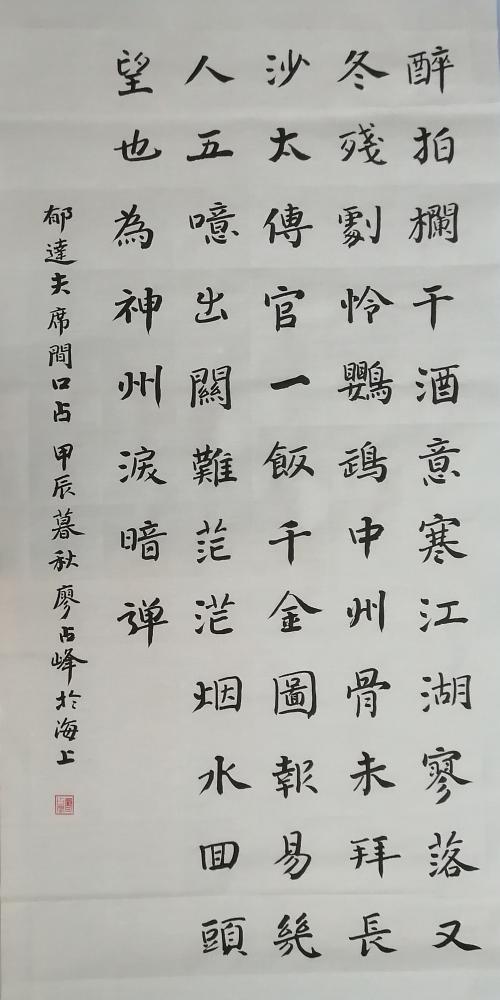 醉拍欄干酒意寒江湖寥落又
冬殘劇怜鸚鵡中州骨未拜長
沙太傅官一飯千金圖報易幾
人五噫出關難茫茫烟水回頭
望也為神州淚暗彈
郁達夫席間口占甲辰暮秋廖占峰於海上